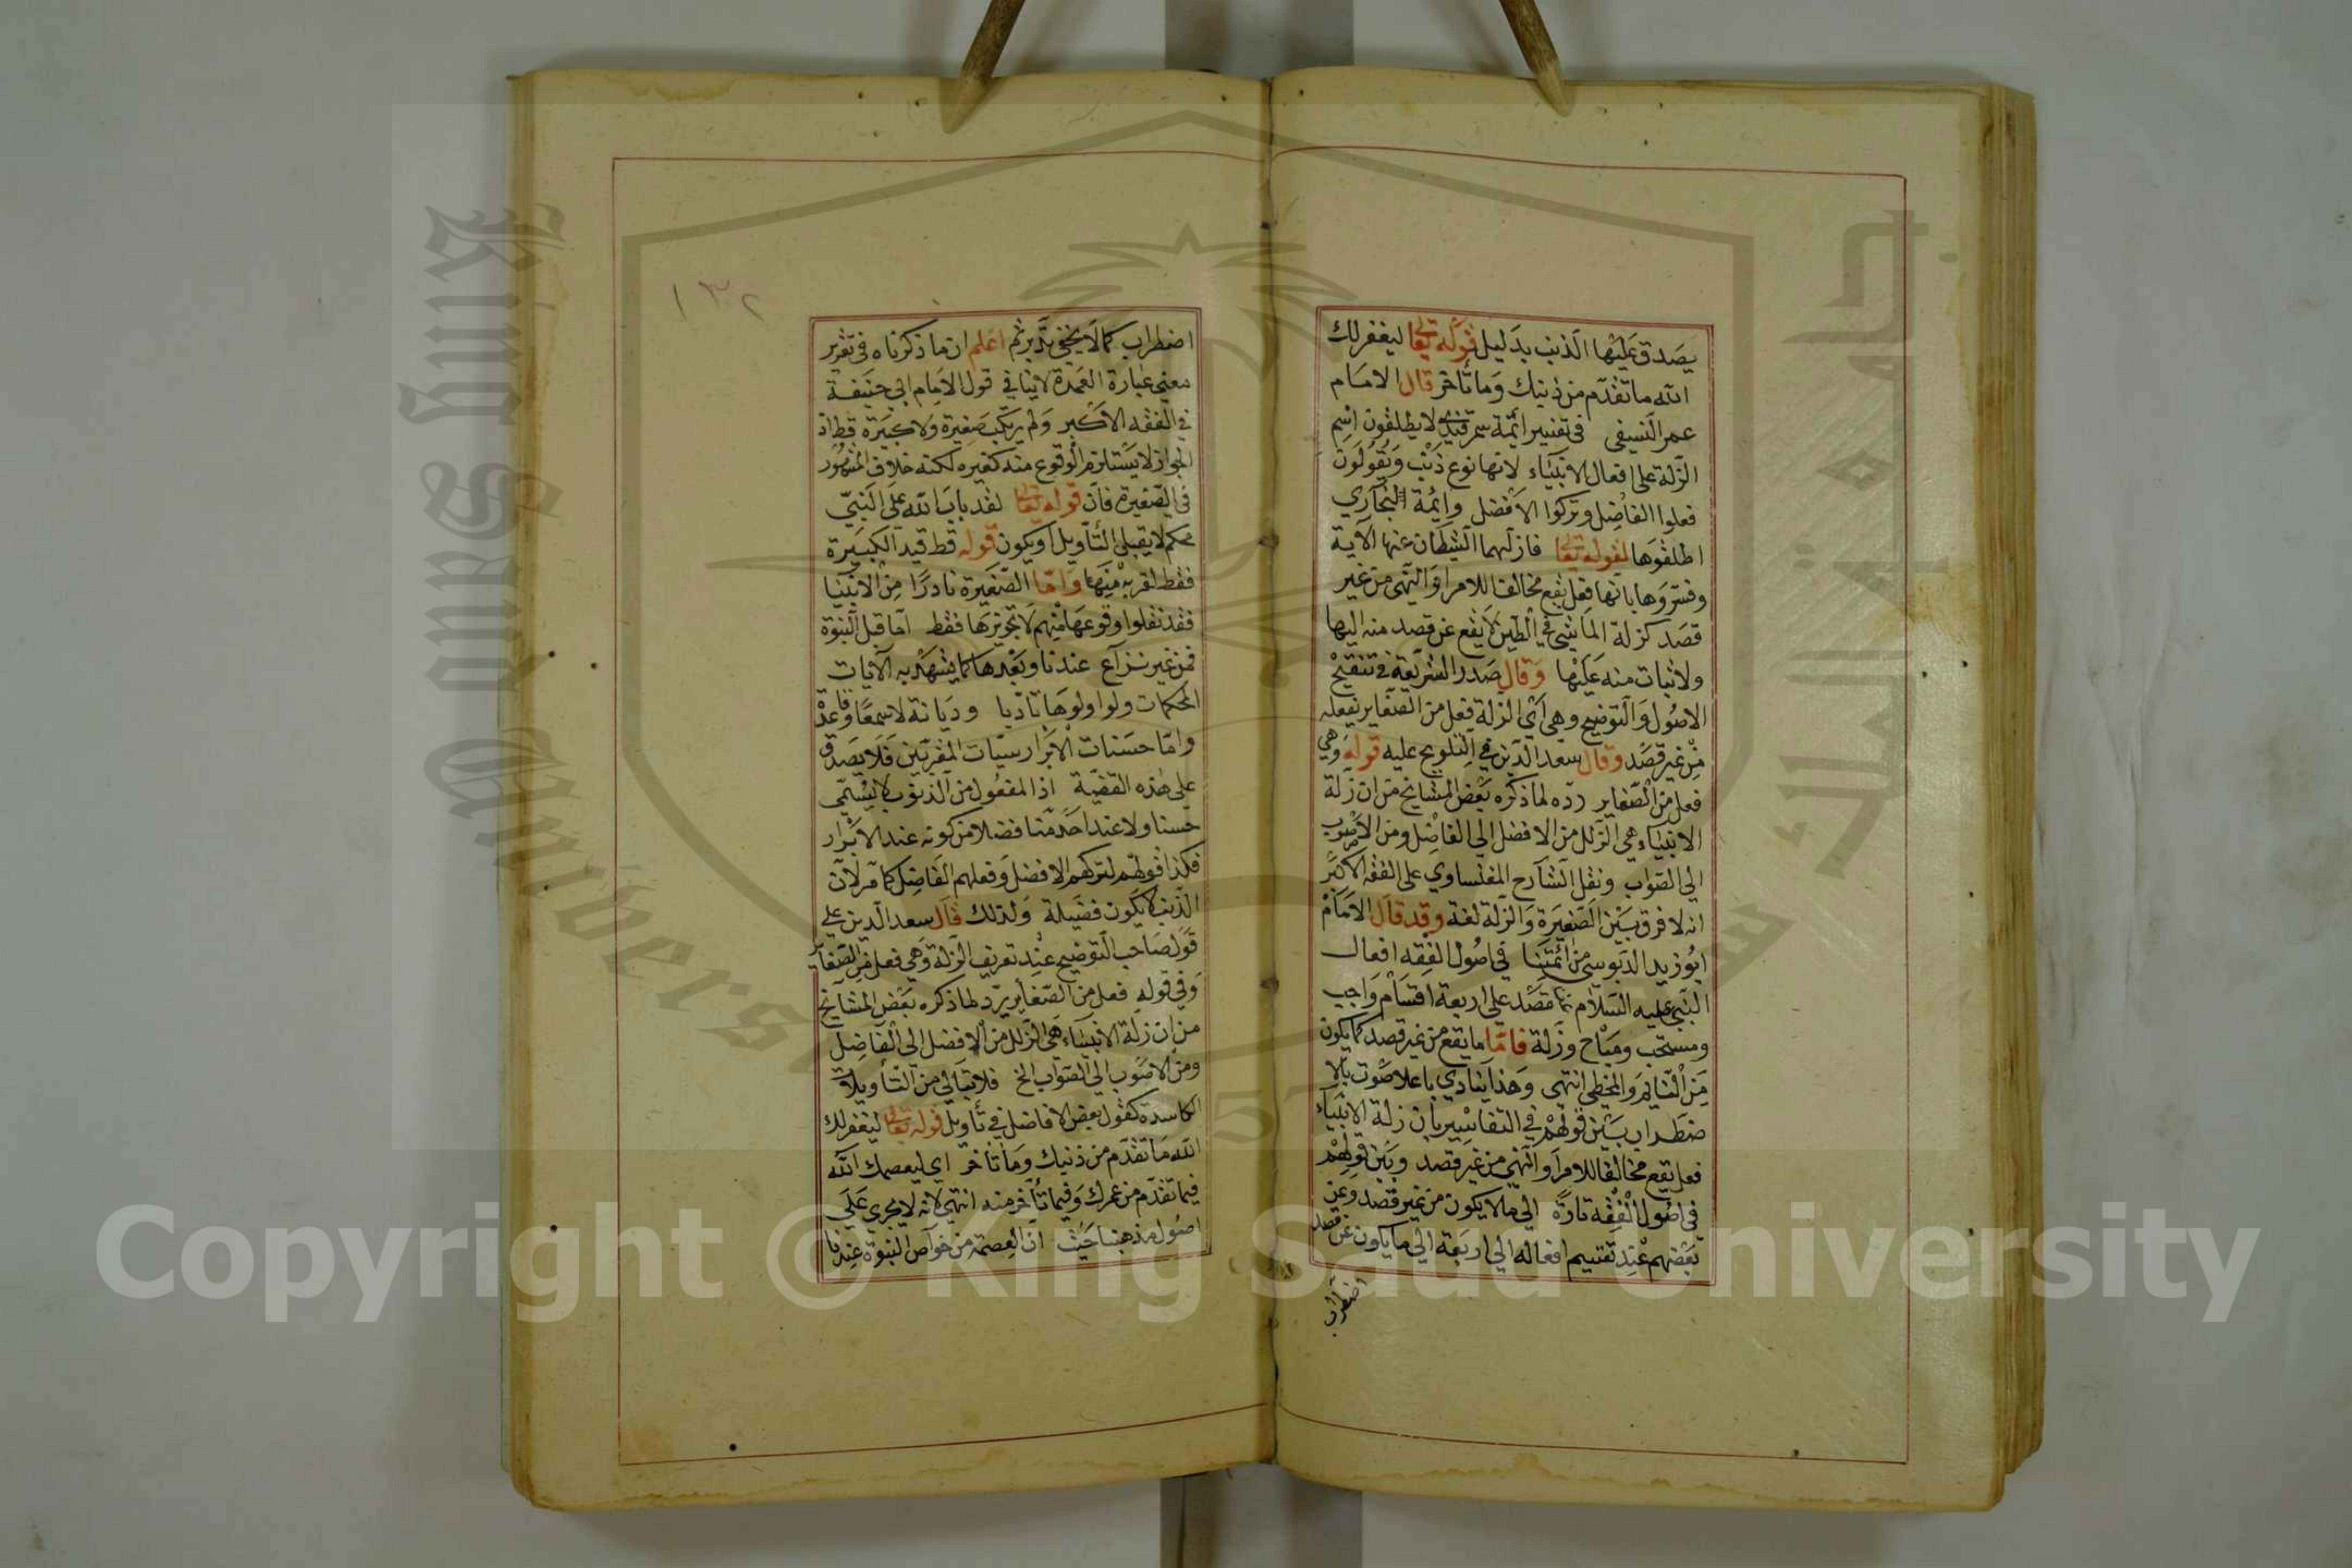 يصدق عليها الذنب بدليل قوله تعالى ليغفر لك
الله ما تقدم من ذنبك وما تأخر قال الامام
عمر النسفى فى تفسير أئمة سمرقند لا يطلقون اسم
الزلة على افعال الانبياء لانها نوع ذنب ويقولون
فعلوا الفاضل وتركوا الأفضل وائمة البخارى
اطلقوها لقوله تعالى فازلهما الشيطان عنها الآية
وفسروها بانها فعل يقع مخالفا للامر او النهى من غير
قصد كزلة الماشي في الطين لا يقع عن قصد منه اليها
ولا ثبات منه عليها وقال صدر الشريعة فى تنقيح
الاصول والتوضيح وهى اي الزلة فعل من الصغاير يفعله
من غير قصد وقال سعد الدين في التلويح عليه قوله وهي
فعل من الصغاير رده لما ذكره بعض المشايخ من ان زلة
الانبياء هى الزلل من الافضل الى الفاضل ومن الاصوب
الى الصواب ونقل الشارح المغنساوي على الفقه الاكبر
انه لا فرق بين الصغيرة والزلة لغة وقد قال الامام
ابو زيد الدبوسي من ائمتنا في اصول الفقه افعال
النبى عليه السلام عن قصد على اربعة اقسام واجب
ومستحب ومباح وزلة فاما ما يقع من غير قصد كما يكون
من النائم والمخطى انتهى وهذا ينادي باعلا صوت بالا
ضطراب بين قولهم في التفاسير بان زلة الانبياء
فعل يقع مخالفا للامر او النهي من غير قصد وبين قولهم
في اصول الفقه تارة الى ما لا يكون من غير قصد وعن
بعضهم عند تقسيم افعاله الى اربعة الى ما يكون عن قصد
اضطراب
١٣٢
اضطراب كما لا يخفى تدبر ثم اعلم ان ما ذكرناه فى تقرير
معنى عبارة العمدة لا ينافي قول الامام ابي حنيفة
في الفقه الاكبر ولم يرتكب صغيرة ولا كبيرة قط اذ
الجواز لا يستلزم الوقوع منه كغيره لكنه خلاف المشهور
فى الصغيرة فان قوله تعالى لقد تاب الله على النبيّ
محكم لا يقبل التأويل او يكون قوله قط قيد الكبيرة
فقط لقربه منها واما الصغيرة نادرًا من الانبيا
فقد نقلوا وقوعها منهم لا تجويزها فقط اما قبل النبوة
فمن غير نزاع عندنا وبعدها كما يشهد به الآيات
المحكمات ولو اولوها تأدبا وديانة لا سمعًا وقاعدة
واما حسنات الابرار سيّات المقربين فلا يصدق
على هذه القضية اذ المفعول من الذنوب لا يسمّى
حسنا ولا عند احد منا فضلا من كونه عند الابرار
فكذا قولهم لتركهم الافضل وفعلهم الفاضل كما مر لان
الذنب لا يكون فضيلة ولذلك قال سعد الدين على
قول صاحب التوضيح عند تعريف الزلة وهي فعل من الصغاير
وفى قوله فعل من الصغاير يرد لما ذكره بعض المشايخ
من ان زلة الانبياء هى الزلل من الافضل الى الفاضل
ومن الاصوب الى الصواب الخ فلا تبالي من التأويلات
الكاسدة كقول بعض الافاضل في تأويل قوله تعالى ليغفر لك
الله ما تقدم من ذنبك وما تأخر اي ليعصمك الله
فيما تقدم من عمرك وفيما تأخر منه انتهى لانه لا يجرى على
اصول مذهبنا حيث ان العصمة من خواص النبوة عندنا
Copyright © King Saud University
King Saud University
1957